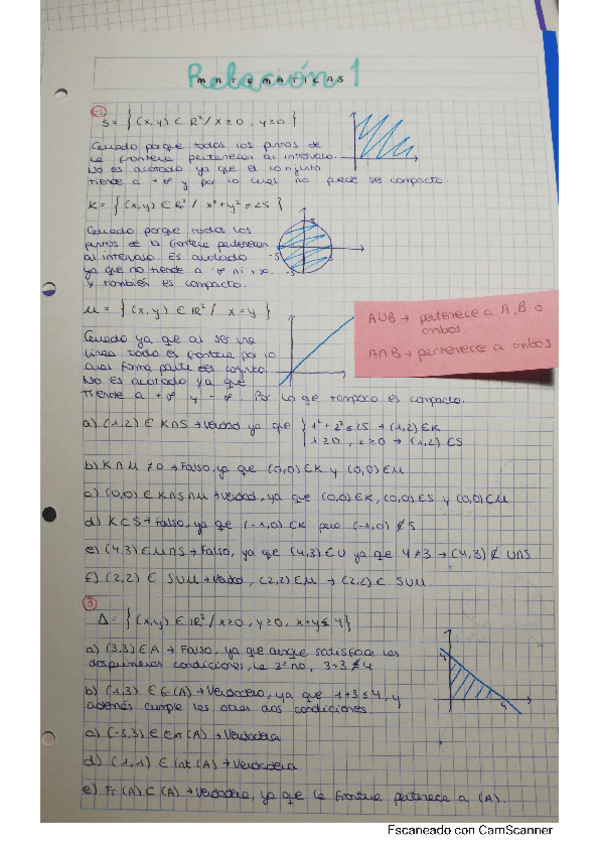 Relación 1
MATEMATICAS
1
S = { (x,y) ∈ R² / x ≥ 0 , y ≥ 0 }
Cerrado porque todos los puntos de
la frontera pertenecen al intervalo.
No es acotado ya que el conjunto
tiende a +∞ y por lo cual no puede ser compacto.
K = { (x,y) ∈ R² / x² + y² ≤ 25 }
Cerrado porque todos los
puntos de la frontera pertenecen
al intervalo. Es acotado
ya que no tiende a -∞ ni +∞.
y también es compacto.
5
-5
5
-5
M = { (x,y) ∈ R² / x = y }
Cerrado ya que al ser una
línea toda es frontera por lo
cual forma parte del conjunto.
No es acotado ya que
tiende a +∞ y -∞. Por lo que tampoco es compacto.
AUB → pertenece a A, B o
ambos.
A∩B → pertenece a ambos
a) (1,2) ∈ K∩S → Verdad ya que { 1² + 2² ≤ 25 → (1,2) ∈ K
1 ≥ 0 , 2 ≥ 0 → (1,2) ∈ S
b) K ∩ M ≠ 0 → Falso, ya que (0,0) ∈ K y (0,0) ∈ M
c) (0,0) ∈ K∩S∩M → Verdad, ya que (0,0) ∈ K, (0,0) ∈ S y (0,0) ∈ M
d) K ⊂ S → Falso, ya que (-1,0) ∈ K pero (-1,0) ∉ S
e) (4,3) ∈ M∩S → Falso, ya que (4,3) ∉ U ya que 4 ≠ 3 → (4,3) ∉ U∩S
f) (2,2) ∈ SUM → Verdad, (2,2) ∈ M → (2,2) ∈ SUM.
3
A = { (x,y) ∈ R² / x ≥ 0 , y ≥ 0 , x + y ≤ 4 }
a) (3,3) ∈ A → Falso, ya que aunque satisface las
dos primeras condiciones, la 3ª no, 3+3 ≰ 4
b) (1,3) ∈ Fr (A) → Verdadero, ya que 1+3 ≤ 4, y
además cumple las otras dos condiciones.
4
4
c) (-3,3) ∈ Ext (A) → Verdadera
d) (1,1) ∈ int (A) → Verdadera
e) Fr (A) ⊂ (A) → Verdadera, ya que la frontera pertenece a (A).
Escaneado con CamScanner